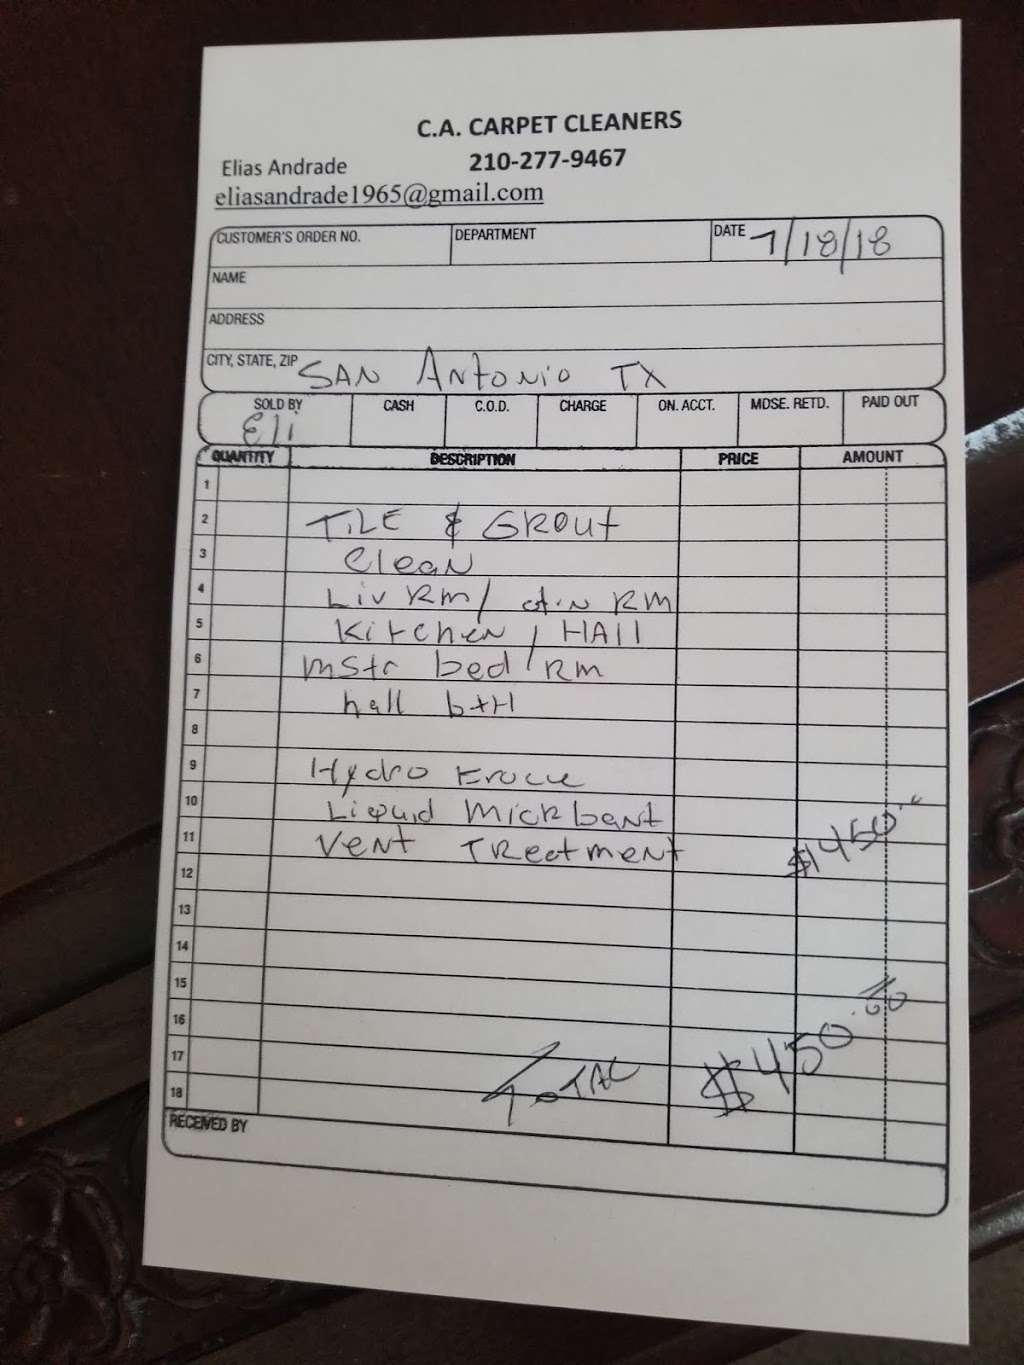 C.A. CARPET CLEANERS
Elias Andrade 210-277-9467
eliasandrade1965@gmail.com
CUSTOMER'S ORDER NO. DEPARTMENT DATE 7/18/18
NAME
ADDRESS
CITY, STATE, ZIP SAN ANTONIO TX
SOLD BY CASH C.O.D. CHARGE ON. ACCT. MDSE. RETD. PAID OUT
Eli
QUANTITY DESCRIPTION PRICE AMOUNT
1
2 TILE & GROUT
3 Clean
4 Liv RM/ din RM
5 Kitchen, HAll
6 mstr bed RM
7 hall btH
8
9 Hydro
10 Liquid
11 Vent TReatment $450
12
13
14
15
16
17 ToTAL $450.00
18
RECEIVED BY